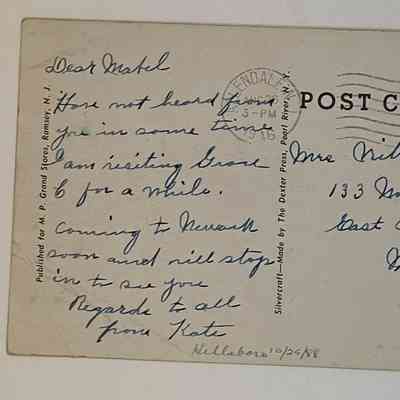 Dear Mabel
Have not heard from
you in some time
I am visiting Grace
C for a while.
Coming to Newark
soon and will stop
in to see you
Regards to all
from Kate
Hillsboro 10/26/88
Published for M. P. Grand Stores, Ramsey, N. J.
Silvercraft—Made by The Dexter Press, Pearl River, N. Y.
ENDALE
3-PM
POST C
Mrs
133
East